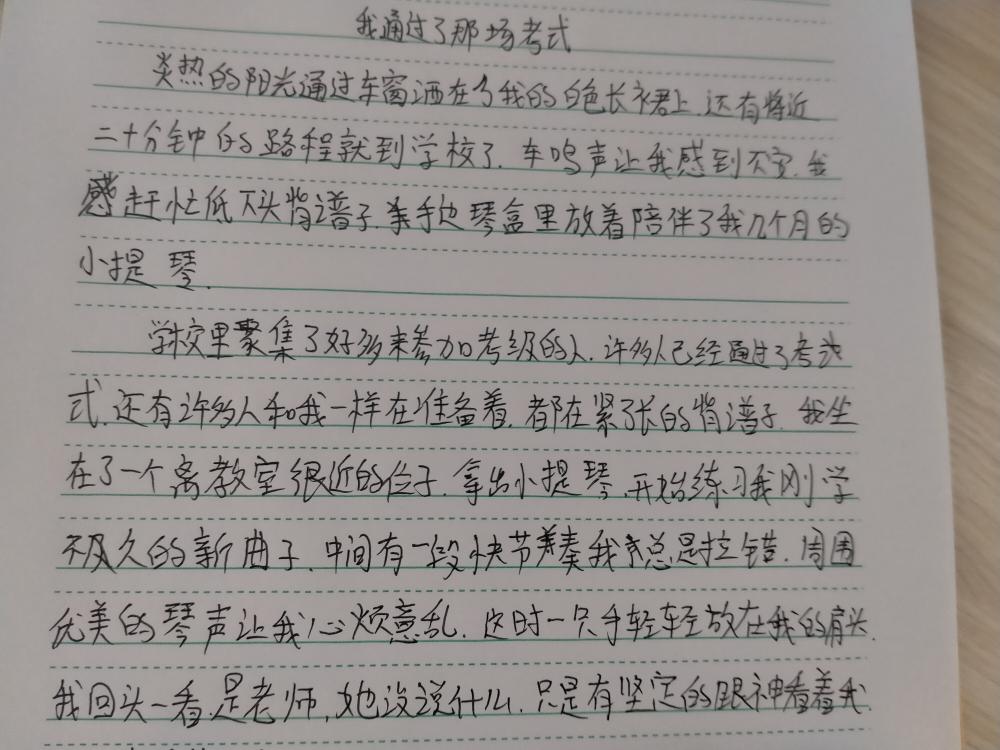 我通过了那场考式
炎热的阳光通过车窗洒在了我的白色长裙上.还有将近
二十分钟的路程就到学校了.车鸣声让我感到不安.我
感赶忙低下头背谱子.手边琴盒里放着陪伴了我几个月的
小提琴.
学校里聚集了好多来参加考级的人.许多人已经通过了考式
式.还有许多人和我一样在准备着.都在紧张的背谱子.我坐
在了一个离教室很近的位子.拿出小提琴.开始练习我刚学
不久的新曲子.中间有一段快节奏我总是拉错.周围
优美的琴声让我心烦意乱.这时一只手轻轻放在我的肩头.
我回头一看.是老师.她没说什么.只是有坚定的眼神看着我.